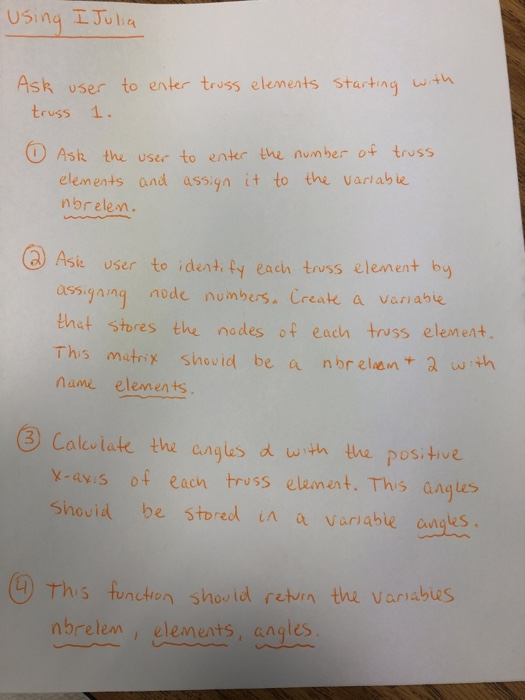 Using IJulia
Ask user to enter truss elements starting with
truss 1.
① Ask the user to enter the number of truss
elements and assign it to the variable
nbrelem.
② Ask user to identify each truss element by
assigning node numbers. Create a variable
that stores the nodes of each truss element.
This matrix should be a nbrelem * 2 with
name elements.
③ Calculate the angles α with the positive
x-axis of each truss element. This angles
should be stored in a variable angles.
④ This function should return the variables
nbrelem, elements, angles.